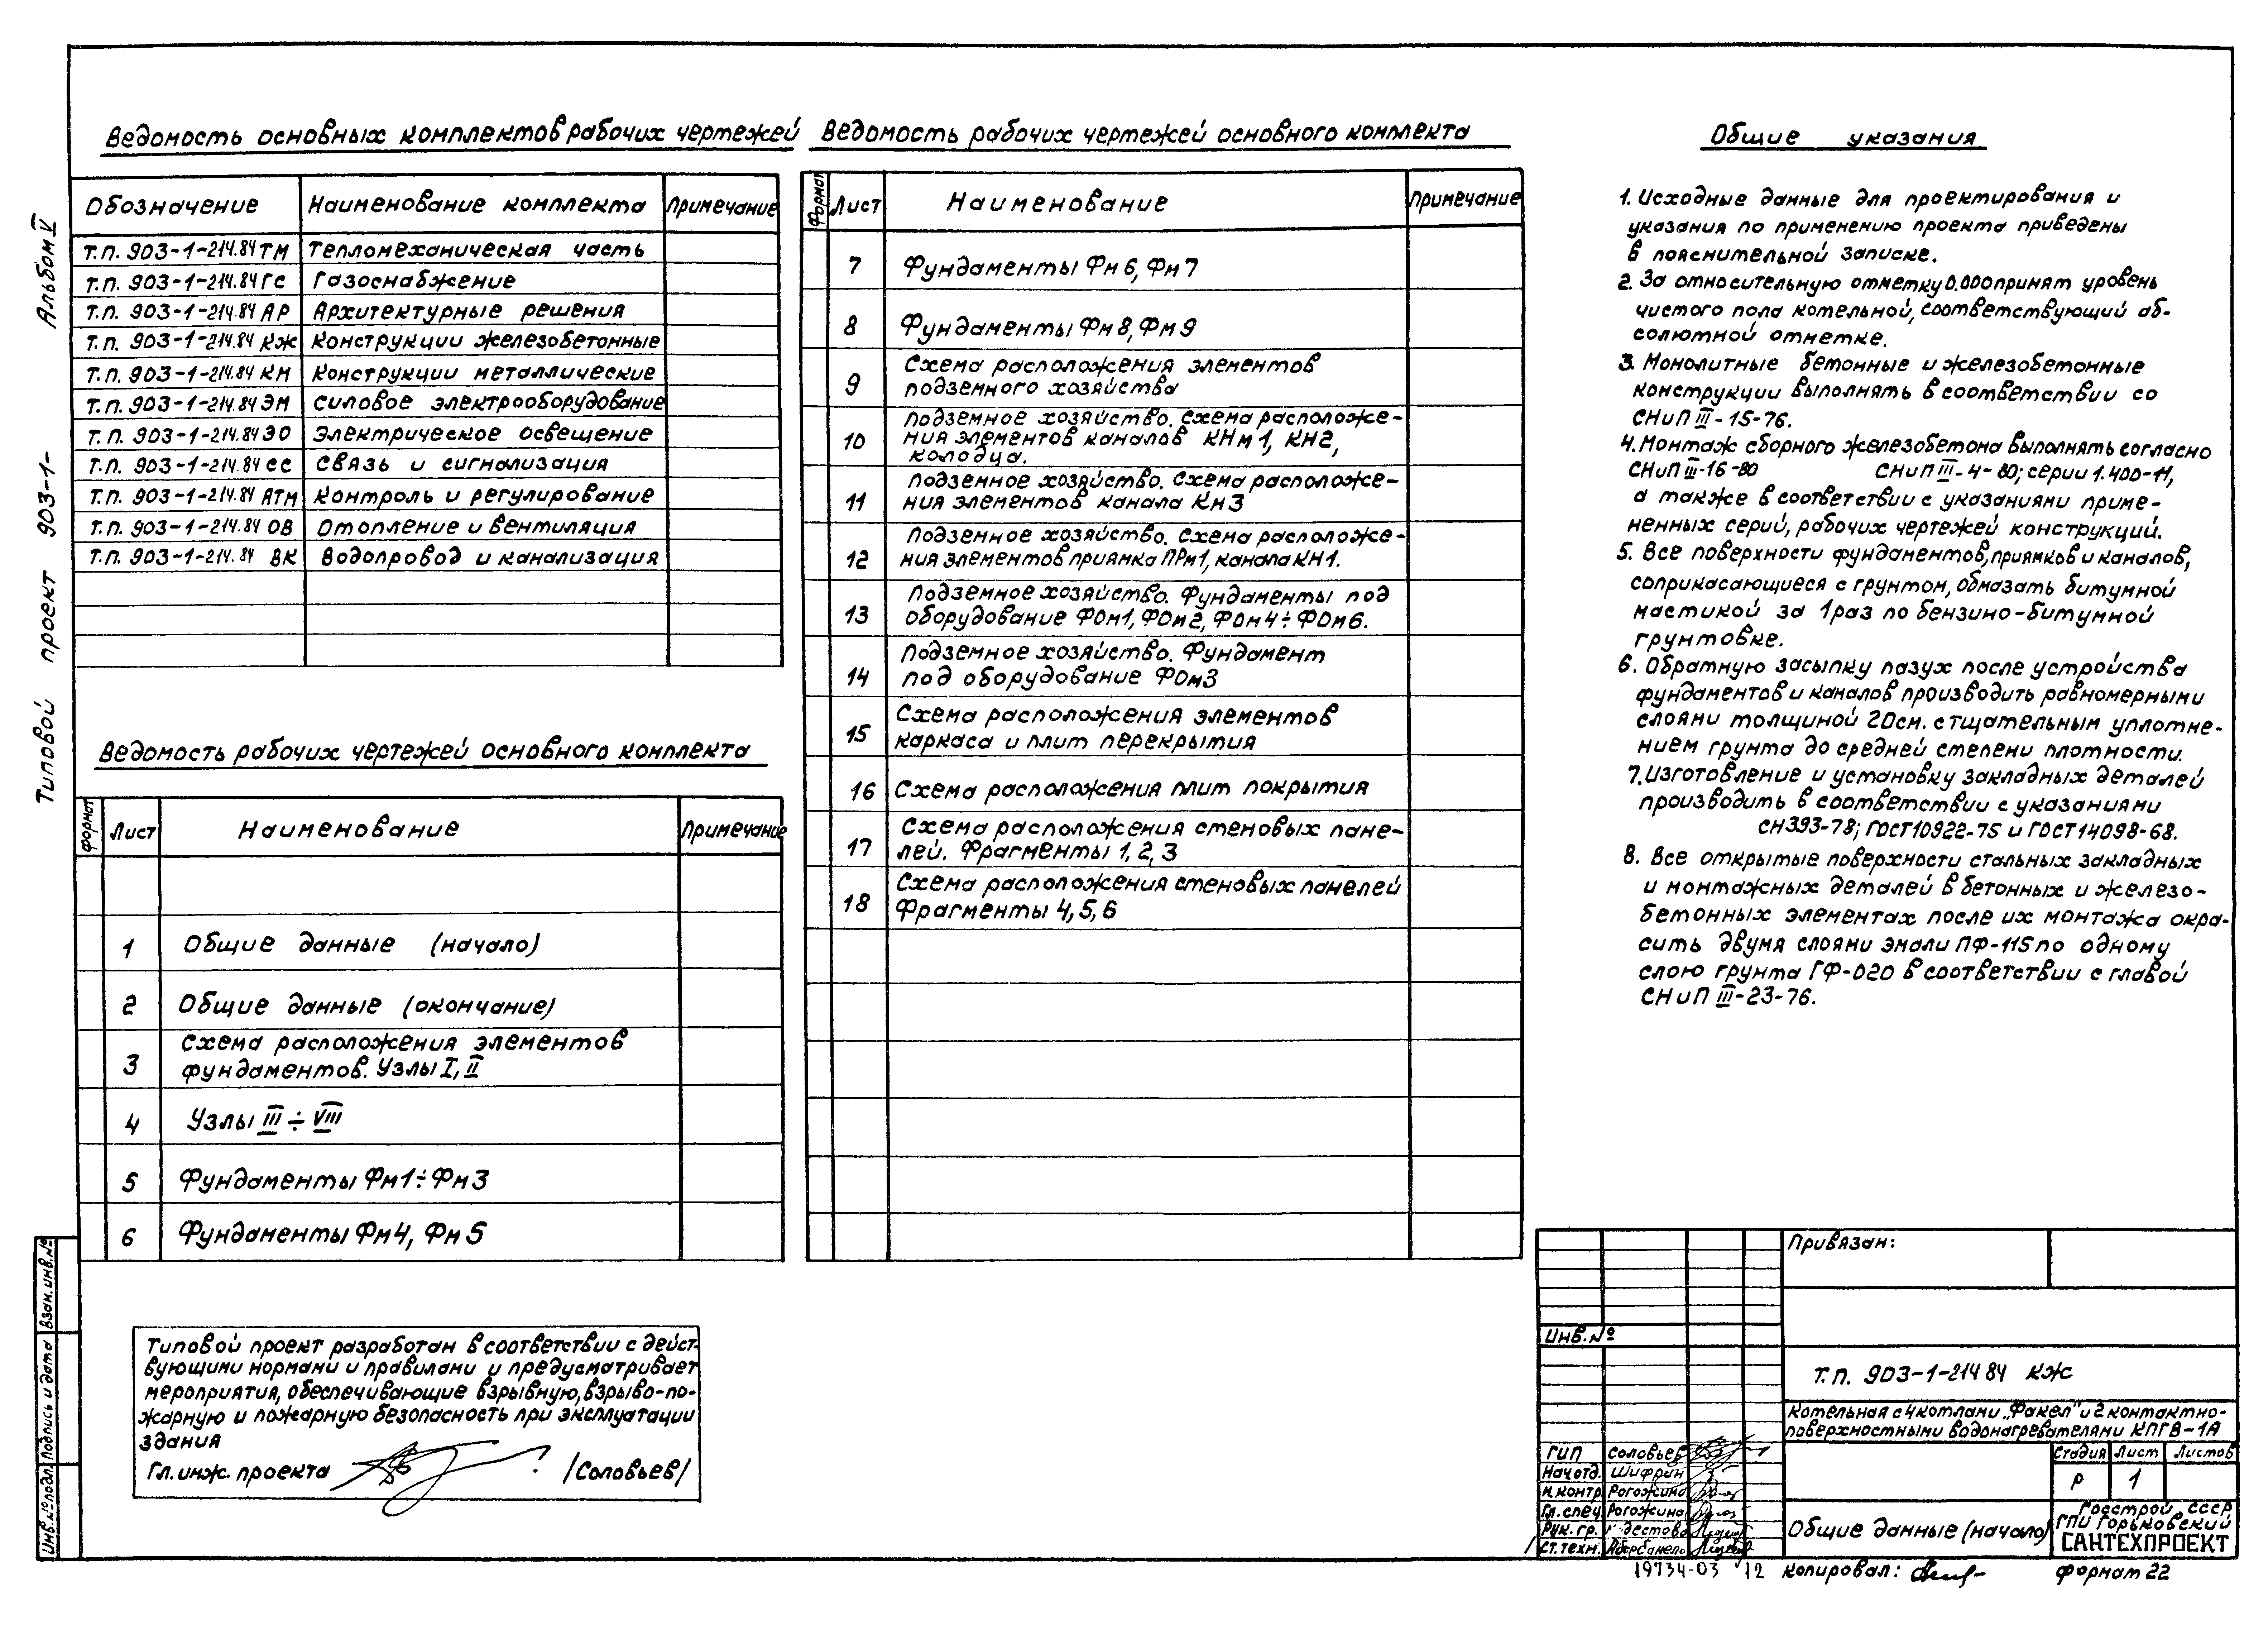 Альбом V
Типовой проект 903-1-
Ведомость основных комплектов рабочих чертежей
Обозначение Наименование комплекта Примечание
Т.п. 903-1-214.84 ТМ Тепломеханическая часть
Т.п. 903-1-214.84 ГС Газоснабжение
Т.п. 903-1-214.84 АР Архитектурные решения
Т.п. 903-1-214.84 КЖ Конструкции железобетонные
Т.п. 903-1-214.84 КМ Конструкции металлические
Т.п. 903-1-214.84 ЭМ Силовое электрооборудование
Т.п. 903-1-214.84 ЭО Электрическое освещение
Т.п. 903-1-214.84 СС Связь и сигнализация
Т.п. 903-1-214.84 АТМ Контроль и регулирование
Т.п. 903-1-214.84 ОВ Отопление и вентиляция
Т.п. 903-1-214.84 ВК Водопровод и канализация
Ведомость рабочих чертежей основного комплекта
Формат Лист Наименование Примечание
1 Общие данные (начало)
2 Общие данные (окончание)
3 Схема расположения элементов
фундаментов. Узлы I, II
4 Узлы III ÷ VIII
5 Фундаменты Фм1÷Фм3
6 Фундаменты Фм4, Фм5
Типовой проект разработан в соответствии с дейст-
вующими нормами и правилами и предусматривает
мероприятия, обеспечивающие взрывную, взрыво-по-
жарную и пожарную безопасность при эксплуатации
здания
Гл. инж. проекта /Соловьев/
Ведомость рабочих чертежей основного комплекта
Формат Лист Наименование Примечание
7 Фундаменты Фм6, Фм7
8 Фундаменты Фм8, Фм9
9 Схема расположения элементов
подземного хозяйства
10 Подземное хозяйство. Схема расположе-
ния элементов каналов КНм1, КН2,
колодца.
11 Подземное хозяйство. Схема расположе-
ния элементов канала Кн3
12 Подземное хозяйство. Схема расположе-
ния элементов приямка ПРм1, канала КН1.
13 Подземное хозяйство. Фундаменты под
оборудование ФОм1, ФОм2, ФОм4÷ФОм6.
14 Подземное хозяйство. Фундамент
под оборудование ФОм3
15 Схема расположения элементов
каркаса и плит перекрытия
16 Схема расположения плит покрытия
17 Схема расположения стеновых пане-
лей. Фрагменты 1, 2, 3
18 Схема расположения стеновых панелей
Фрагменты 4, 5, 6
Общие указания
1. Исходные данные для проектирования и
указания по применению проекта приведены
в пояснительной записке.
2. За относительную отметку 0.000 принят уровень
чистого пола котельной, соответствующий аб-
солютной отметке.
3. Монолитные бетонные и железобетонные
конструкции выполнять в соответствии со
СНиП III-15-76.
4. Монтаж сборного железобетона выполнять согласно
СНиП III-16-80 СНиП III-4-80; серии 1.400-11,
а также в соответствии с указаниями приме-
ненных серий, рабочих чертежей конструкций.
5. Все поверхности фундаментов, приямков и каналов,
соприкасающиеся с грунтом, обмазать битумной
мастикой за 1 раз по бензино-битумной
грунтовке.
6. Обратную засыпку пазух после устройства
фундаментов и каналов производить равномерными
слоями толщиной 20см. с тщательным уплотне-
нием грунта до средней степени плотности.
7. Изготовление и установку закладных деталей
производить в соответствии с указаниями
СН393-78; ГОСТ10922-75 и ГОСТ14098-68.
8. Все открытые поверхности стальных закладных
и монтажных деталей в бетонных и железо-
бетонных элементах после их монтажа окра-
сить двумя слоями эмали ПФ-115 по одному
слою грунта ГФ-020 в соответствии с главой
СНиП III-23-76.
Привязан:
Инв.№
Т.п. 903-1-214 84 КЖ
Котельная с 4 котлами „Факел" и 2 контактно-
поверхностными водонагревателями КПГВ-1А
Стадия Лист Листов
Р 1
ГИП Соловьев
Нач.отд. Шифрин
Н.контр Рогожина
Гл.спец Рогожина
Рук.гр.
Ст.техн.
Общие данные (начало)
Госстрой СССР
ГПИ Горьковский
САНТЕХПРОЕКТ
19734-03 12 Копировал: Формат 22
Инв.№ подл. Подпись и дата Взам.инв.№